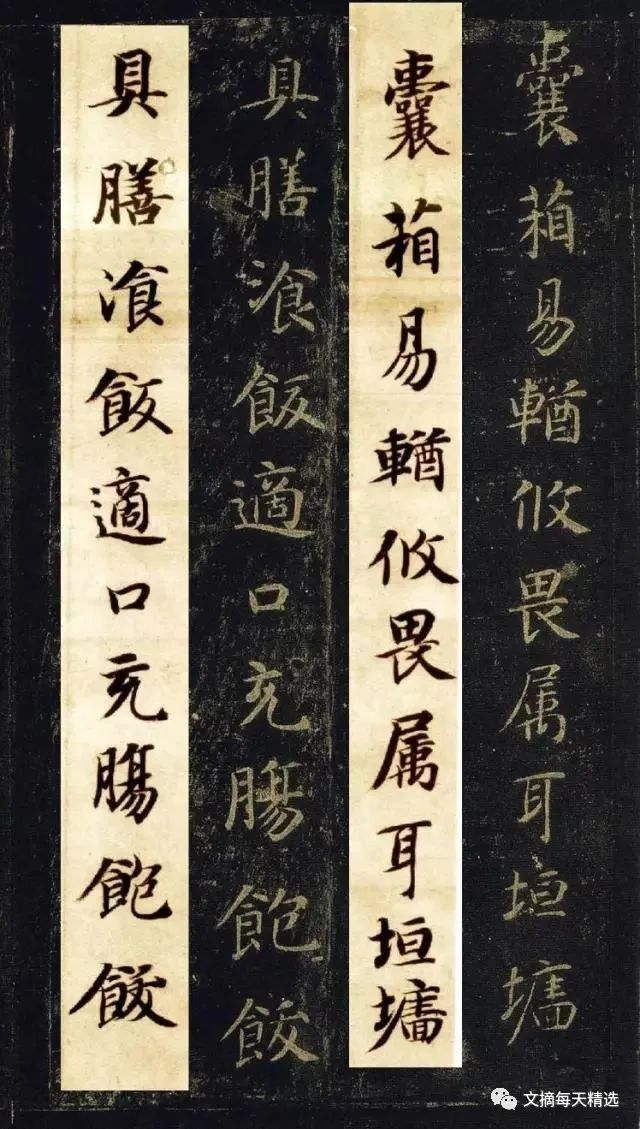 囊箱易輶攸畏属耳垣墻
囊箱易輶攸畏属耳垣墻
具膳湌飯適口充膓飽飫
具膳飡飯適口充膓飽飫
文摘每天精选